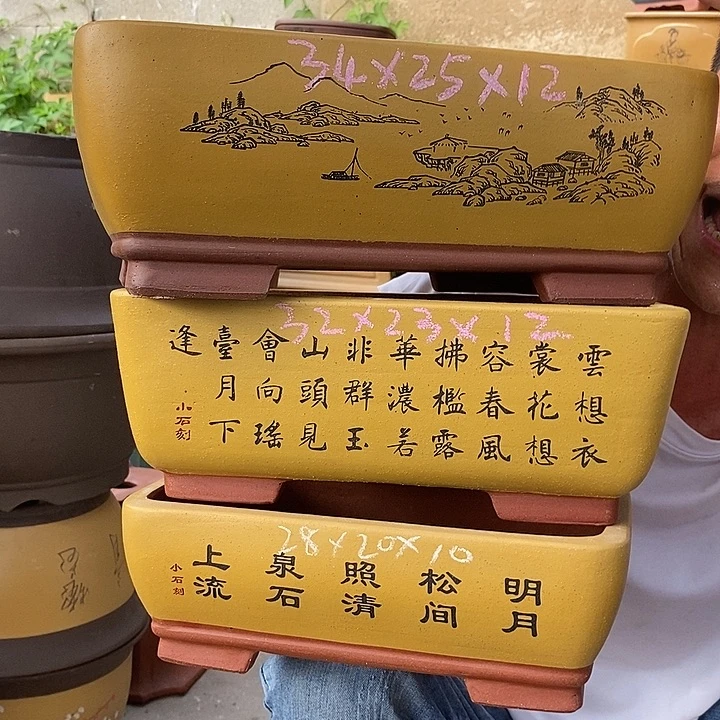 34×25×12
32×23×12
雲想衣
裳花想
容春風
拂檻露
華濃若
非群玉
山頭見
會向瑤
臺月下
逢
小石刻
28×20×10
明月
松间
照清
泉石
上流
小石刻